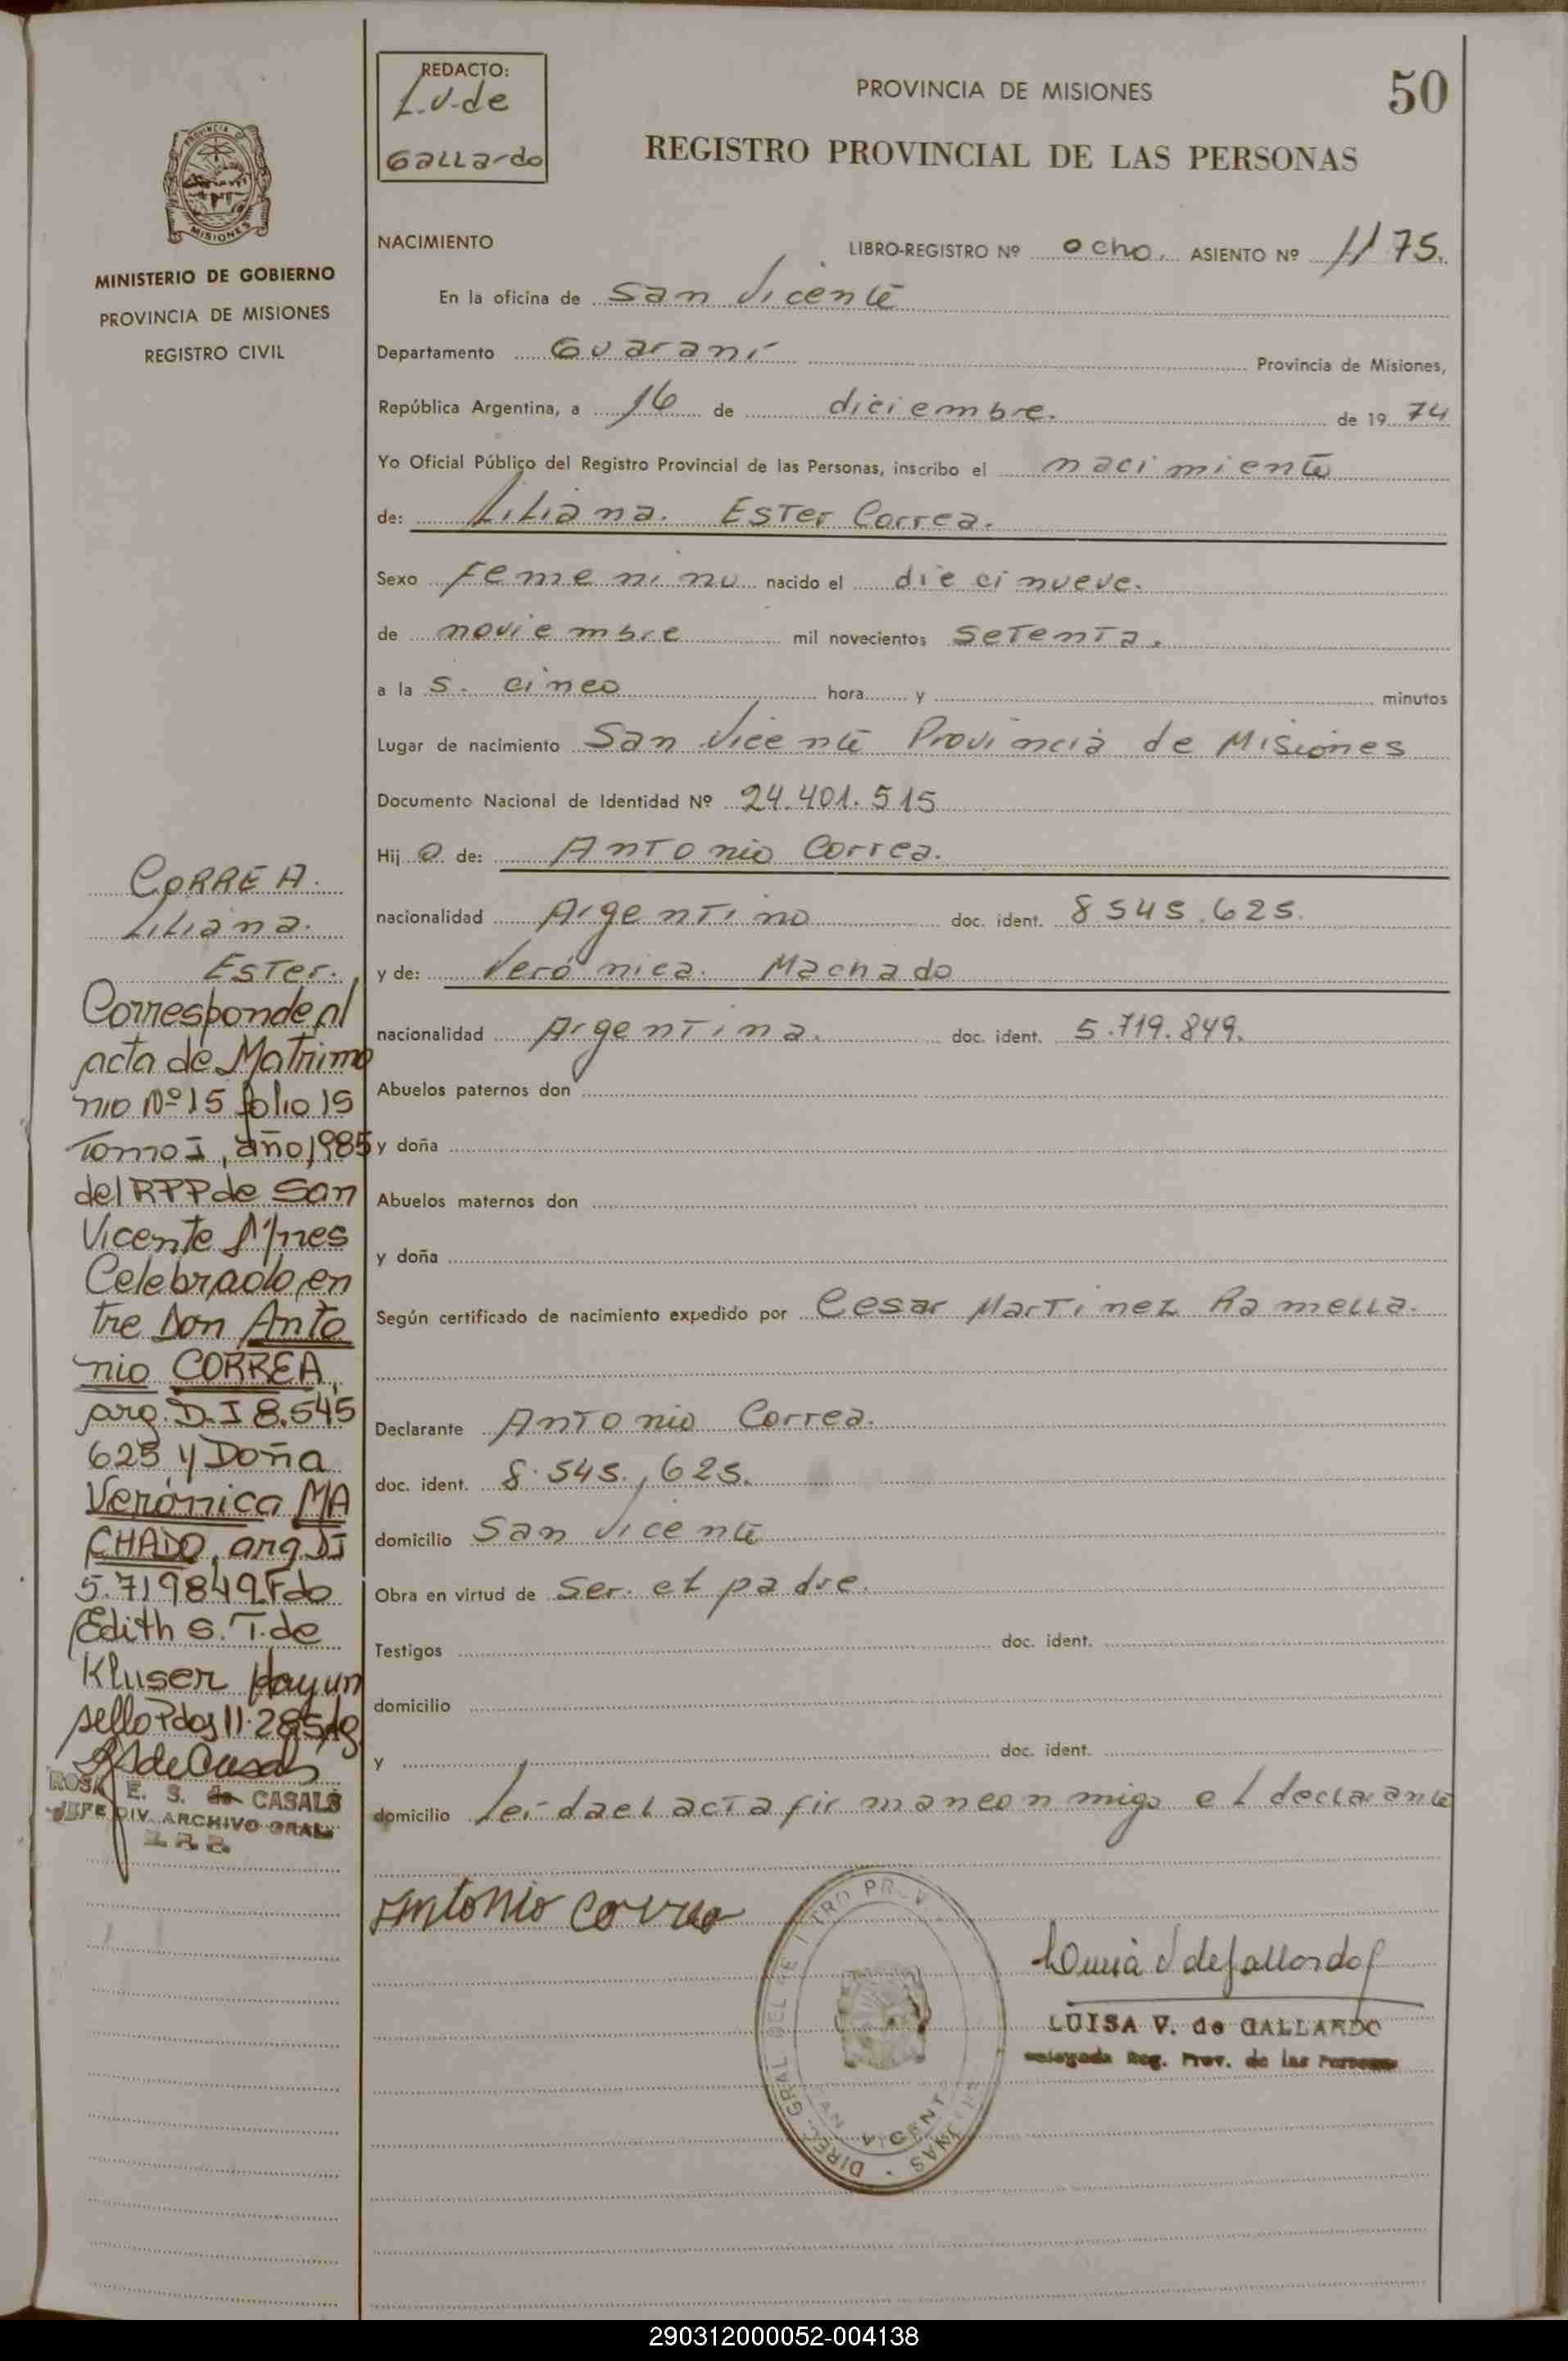 REDACTO:
L.V. de
Gallardo
PROVINCIA DE MISIONES
50
REGISTRO PROVINCIAL DE LAS PERSONAS
PROVINCIA DE
MISIONES
MINISTERIO DE GOBIERNO
PROVINCIA DE MISIONES
REGISTRO CIVIL
NACIMIENTO
LIBRO-REGISTRO Nº ocho. ASIENTO Nº 1175.
En la oficina de San Vicente
Departamento Guaraní Provincia de Misiones,
República Argentina, a 16 de diciembre. de 19 74
Yo Oficial Público del Registro Provincial de las Personas, inscribo el nacimiento
de: Liliana. Ester Correa.
Sexo Femenino nacido el diecinueve.
de noviembre mil novecientos setenta.
a la s. cinco hora y minutos
Lugar de nacimiento San Vicente Provincia de Misiones
Documento Nacional de Identidad Nº 24.401.515
Hij a de: Antonio Correa.
nacionalidad Argentino doc. ident. 8.545.625.
y de: Verónica. Machado
nacionalidad Argentina. doc. ident. 5.719.849.
Abuelos paternos don
y doña
Abuelos maternos don
y doña
Según certificado de nacimiento expedido por Cesar Martinez Ramella.
Declarante Antonio Correa.
doc. ident. 8.545.625.
domicilio San Vicente
Obra en virtud de Ser. el padre.
Testigos doc. ident.
domicilio
y doc. ident.
domicilio Leída el acta firman conmigo el declarante
CORREA.
Liliana.
Ester.
Corresponde al
acta de Matrimo
nio Nº 15 folio 15
Tomo I, año 1985
del RPP de San
Vicente M/nes
Celebrado en
tre Don Anto
nio CORREA,
arg. D.I 8.545
625 y Doña
Verónica MA
CHADO, arg. DI
5.719849 Fdo
Edith S. T. de
Kluser Hay un
sello Pdas 11.285/18
ROSA E. S. de CASALS
JEFE DIV. ARCHIVO GRAL.
Antonio Correa
DIREC. GRAL. DEL REGISTRO PROV.
SAN VICENTE
Luisa V de Gallardo
LUISA V. de GALLARDO
Delegada Reg. Prov. de las Personas
290312000052-004138